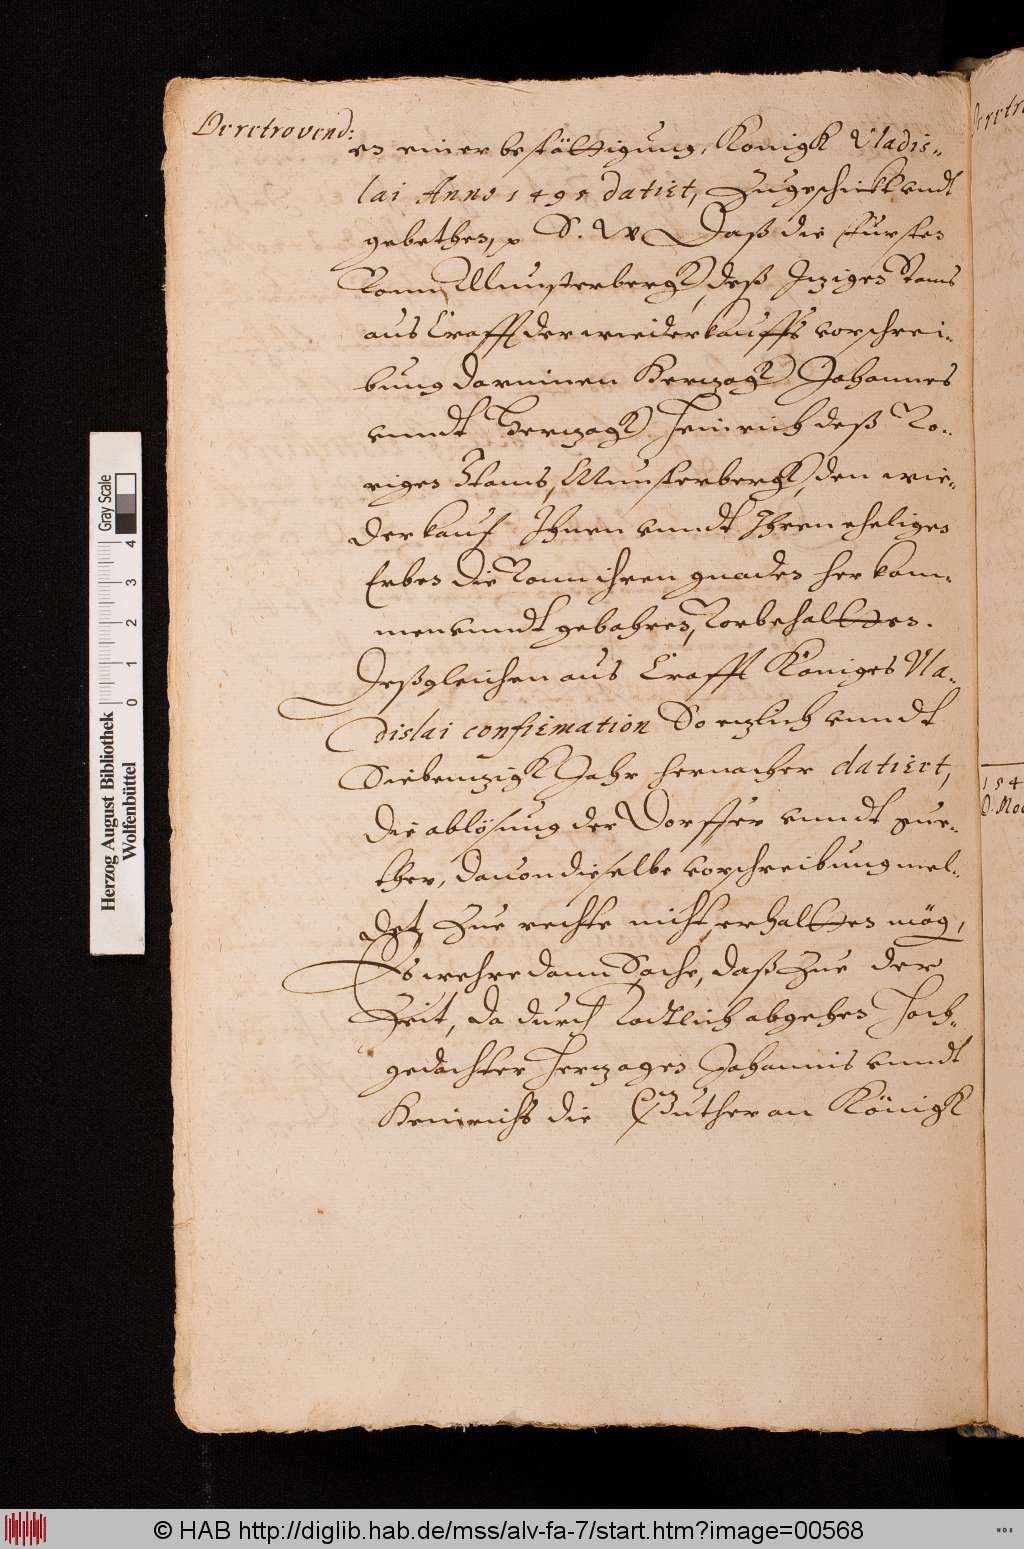 De retrovend:
en einer bestättigung, Königk Vladis-
lai Anno 1495 datirt, Zugeschickt vndt
gebethen, p S. W Daß die Fursten
Vonn Munsterbergk, deß Jzigen Stams
aus Crafft der wiederkauffs vorschrei-
bung darinnen Herzogk Johannes
vnndt Herzogk Heinrich deß Vo-
rigen Stams, Munsterbergk, den wie-
derkauf Ihnen vnndt Ihren eheligen
Erben die Vonn ihren gnaden her kom-
men vnndt gebohren, Vorbehaltten.
Deßgleichen aus Crafft Königes Vla-
dislai confirmation So etzlich vnndt
Siebenzigk Jahr hernacher datirt,
die ablösung der Dorffer vnndt gue-
ther, dauon dieselbe vorschreibung mel-
det, Zue rechte nicht erhaltten mög,
Es wehre dann Sache, daß Zue der
Zeit, da durch Todtlich abgehen Hoch-
gedachter Herzogen Johannis vnndt
Heinrichs die Guther an Königk
154
Gray Scale
4
3
2
1
0
Herzog August Bibliothek
Wolfenbüttel
© HAB http://diglib.hab.de/mss/alv-fa-7/start.htm?image=00568